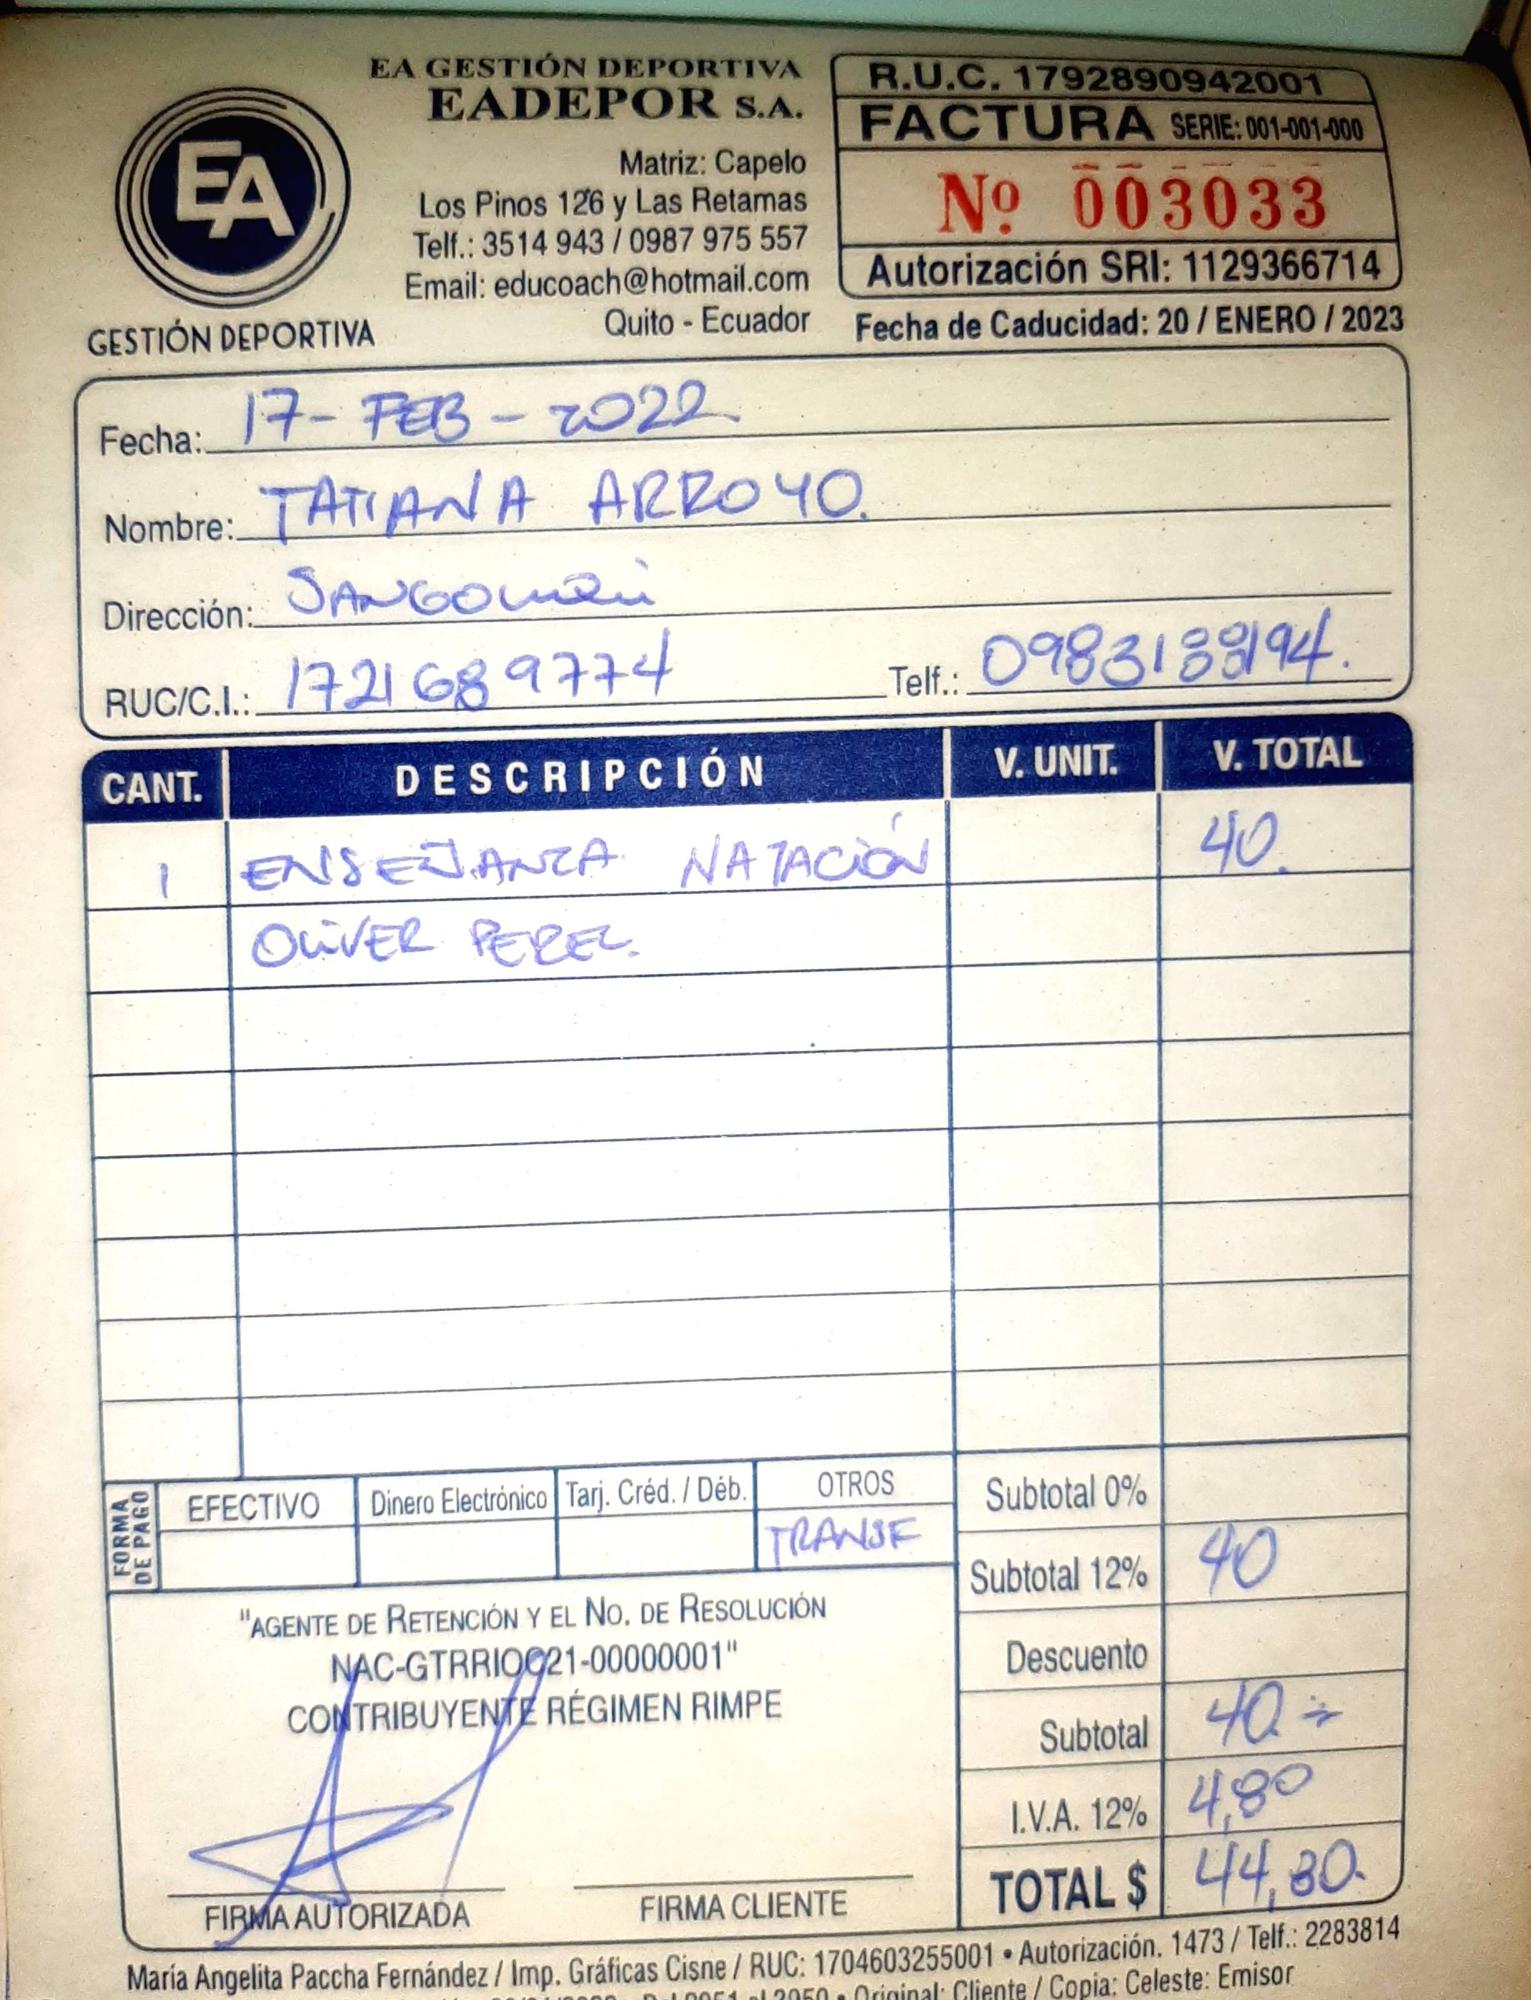 EA GESTIÓN DEPORTIVA
EADEPOR S.A.
Matriz: Capelo
Los Pinos 126 y Las Retamas
Telf.: 3514 943 / 0987 975 557
Email: educoach@hotmail.com
Quito - Ecuador
EA
GESTIÓN DEPORTIVA
R.U.C. 1792890942001
FACTURA SERIE: 001-001-000
Nº 003033
Autorización SRI: 1129366714
Fecha de Caducidad: 20 / ENERO / 2023
Fecha: 17-FEB-2022
Nombre: TATIANA ARROYO.
Dirección:
RUC/C.I.: 1721689774 Telf.: 0983188194.
CANT. DESCRIPCIÓN V. UNIT. V. TOTAL
1 ENSEÑANZA NATACIÓN 40.
OLIVER PEREZ.
FORMA DE PAGO
EFECTIVO Dinero Electrónico Tarj. Créd. / Déb. OTROS
TRANSF
Subtotal 0%
Subtotal 12% 40
Descuento
Subtotal 40.
I.V.A. 12% 4,80
TOTAL $ 44,80.
"AGENTE DE RETENCIÓN Y EL NO. DE RESOLUCIÓN
NAC-GTRRIOC21-00000001"
CONTRIBUYENTE RÉGIMEN RIMPE
FIRMA AUTORIZADA FIRMA CLIENTE
María Angelita Paccha Fernández / Imp. Gráficas Cisne / RUC: 1704603255001 • Autorización. 1473 / Telf.: 2283814
• Original: Cliente / Copia: Celeste: Emisor